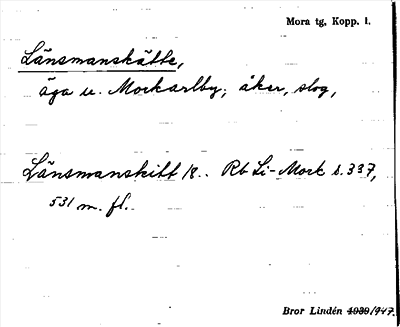 Mora tg, Kopp. l.
Länsmanskätte,
äga u. Morkarlby; åker, slog,
Länsmanskitt 18.. Rb Li-Mork s. 337,
531 m. fl.
Bror Lindén 1939/947.